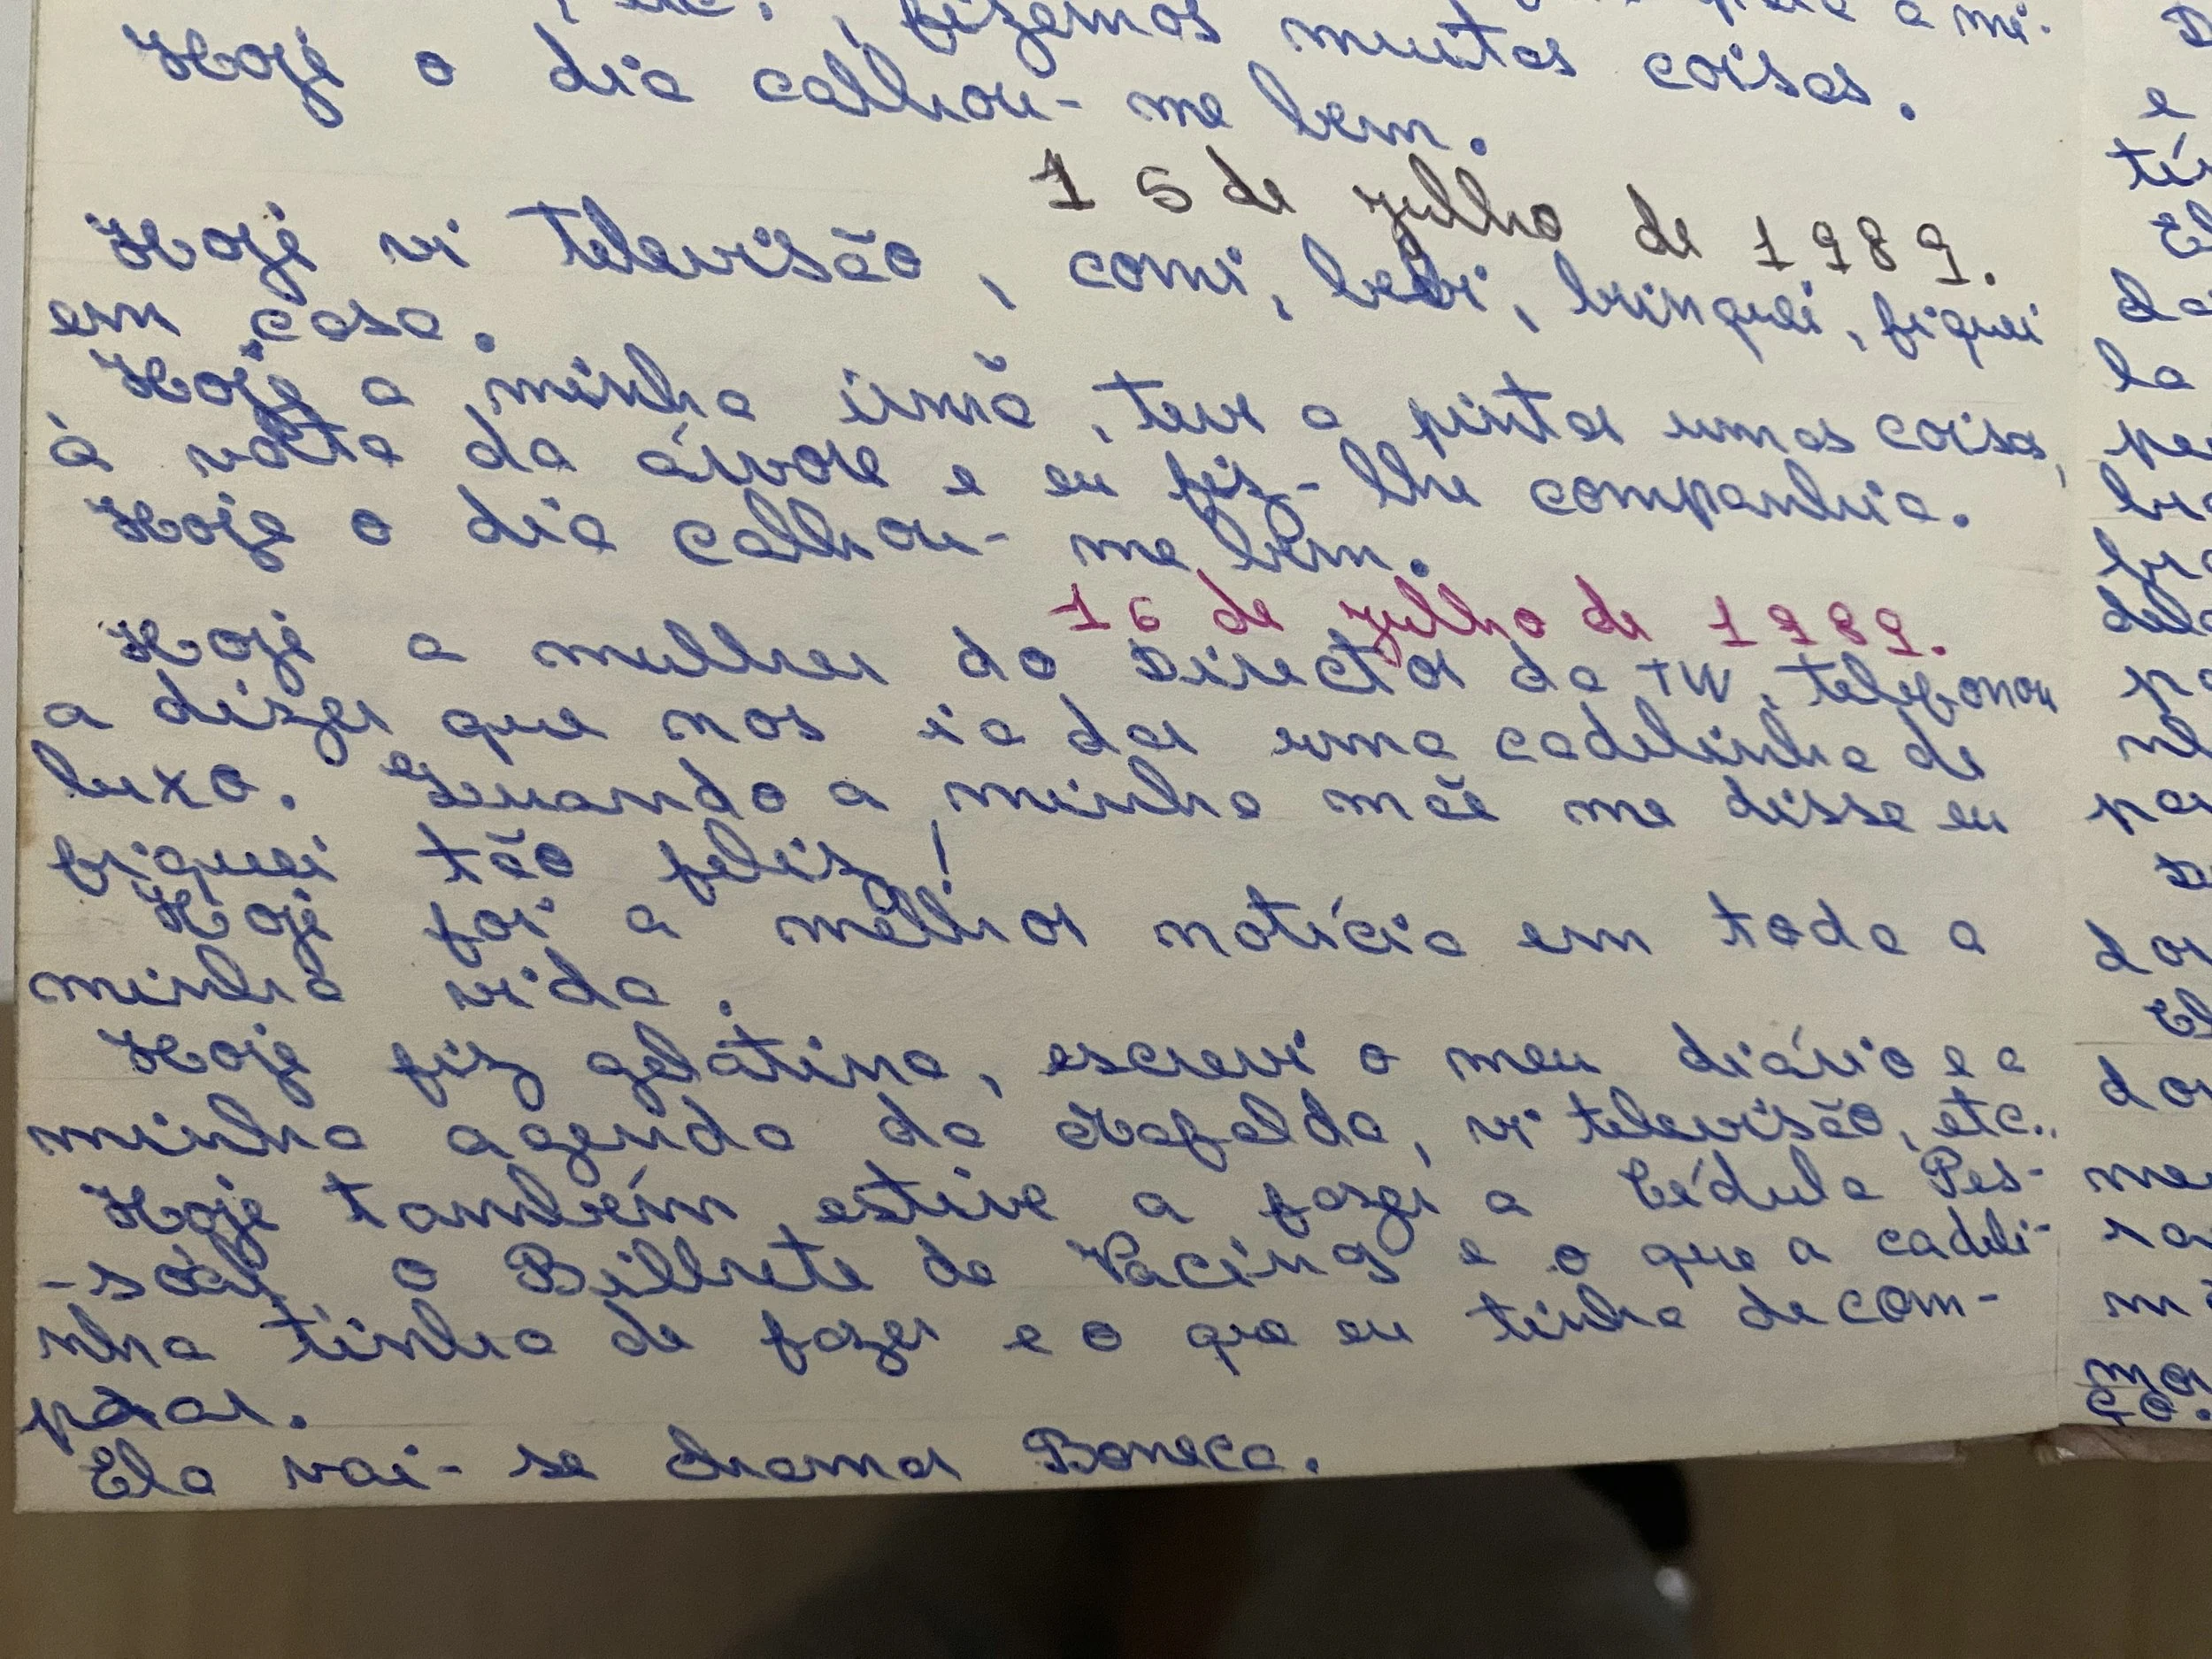 etc., fizemos muitas coisas. a mi-
Hoje o dia calhou-me bem.
15 de julho de 1989.
Hoje vi televisão, comi, bebi, brinquei, fiquei
em casa.
Hoje a minha irmã, teve a pintar umas coisas,
à volta da árvore e eu fiz-lhe companhia.
Hoje o dia calhou-me bem.
16 de julho de 1989.
Hoje a mulher do Director da TW, telefonou
a dizer que nos ia dar uma cadelinha de
luxo. Quando a minha mãe me disse eu
fiquei tão feliz!
Hoje foi a melhor notícia em toda a
minha vida.
Hoje fiz gelatina, escrevi o meu diário e a
minha agenda da Mafalda, vi televisão, etc..
Hoje também estive a fazer a Cédula Pes-
-soal, o Bilhete de Vacinas e o que a cadeli-
nha tinha de fazer e o que eu tinha de com-
prar.
Ela vai-se chamar Boneca.